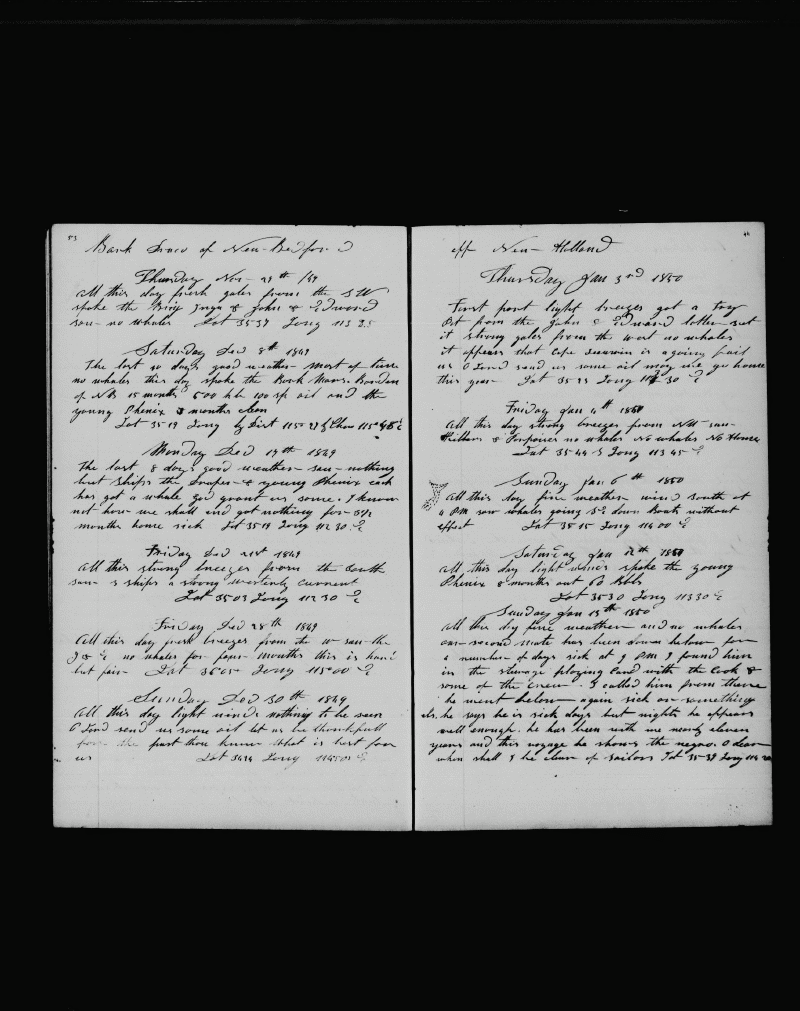 53
Bark Draco of New-Bedford
Thursday Nov 29th /49
All this day fresh gales from the SW
spoke the Brig Inga & John & Edward
saw no whales Lat 3537 Long 113 25
Saturday Dec 8th 1849
The last 10 days good weather most of time
no whales this day spoke the Bark Mars. Bordan
of NB 15 months 500 bbl 100 sp oil and the
young Phenix 3 months clean
Lat 35 19 Long by Dist 115 27 by Chro
Monday Dec 17th 1849
The last 8 days good weather saw nothing
but ships the Draper & young Phenix each
has got a whale god grant us some. I know
not how we shall end got nothing for
months home sick Lat 35 19 Long 112 30 E
Friday Dec 21st 1849
All this strong breezes from the South
saw 3 ships a strong westerly current
Lat 35 03 Long 112 30 E
Friday Dec 28th 1849
All this day fresh breezes from the W saw the
J & E no whales for four months this is hard
but fair Lat 35 05 Long 115 00 E
Sunday Dec 30th 1849
All this day light winds nothing to be seen
O Lord send us some oil let us be thankfull
for the past thou knows what is best for
us Lat 3494 Long
off New-Holland
Thursday Jan 3rd 1850
First part light breezes got a try
Pot from the John & Edward latter part
it strong gales from the west no whales
it appears that cape is agoing fail
us O Lord send us some oil may we go home
this year Lat 35 Long 30 E
Friday Jan 4th 1850
All this day strong breezes from NW saw
& Porpoises no whales No whales No Home
Lat 35 44 S Long 113 45 E
Sunday Jan 6th 1850
All this day fine weather wind South at
4 PM saw whales going So down Boats without
effect Lat 35 15 Long 114 00 E
Saturday Jan 12th 1850
All this day light winds spoke the young
Phenix 8 months out 60 bbls
Lat 35 30 Long 113 30 E
Sunday Jan 13th 1850
All this day fine weather and no whales
our second mate has been down below for
a number of days sick at 9 PM I found him
in the steerage playing Card with the Cook &
some of the crew. I called him from there
he went below again sick or something
els. he says he is sick days but nights he appears
well enough. he has been with me nearly eleven
years and this voyage he shows the negro. O dear
when shall I be clear of sailors Lat 35-39 Long 114